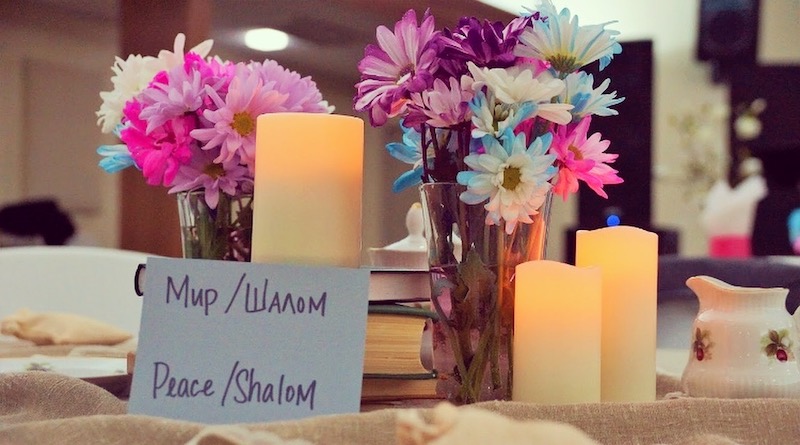 Мир/Шалом
Peace/Shalom